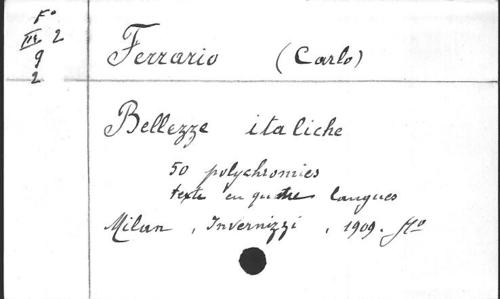 Fº
III 2
9
2
Ferrario (Carlo)
Bellezze italiche
50 polychromies
texte en quatre langues
Milan, Invernizzi, 1909. fº